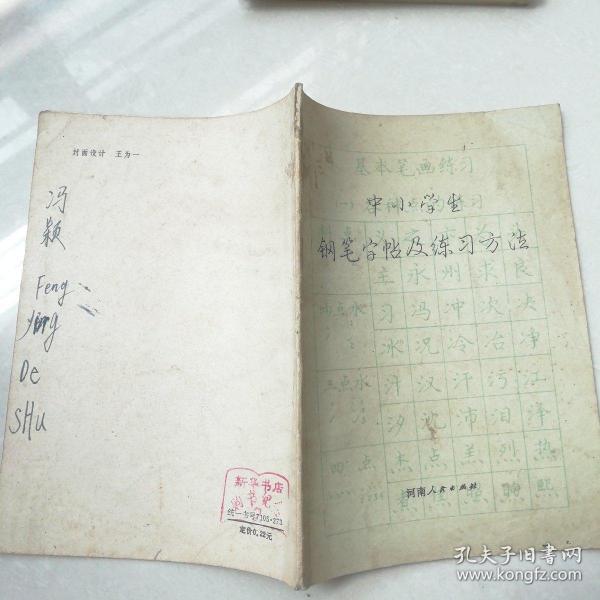 封面设计 王为一
冯
颖
Feng
Ying
De
SHu
新华书店
统一书号7105·273
定价0.22元
基本笔画练习
中小学生
钢笔字帖及练习方法
主永州求良
习冯冲次决
冰况冷冶净
三点水
汗汉汗污江
汐沈沛泪泽
四点
杰点羔烈热
熙
河南人民出版社
孔夫子旧书网
www.kongfz.com